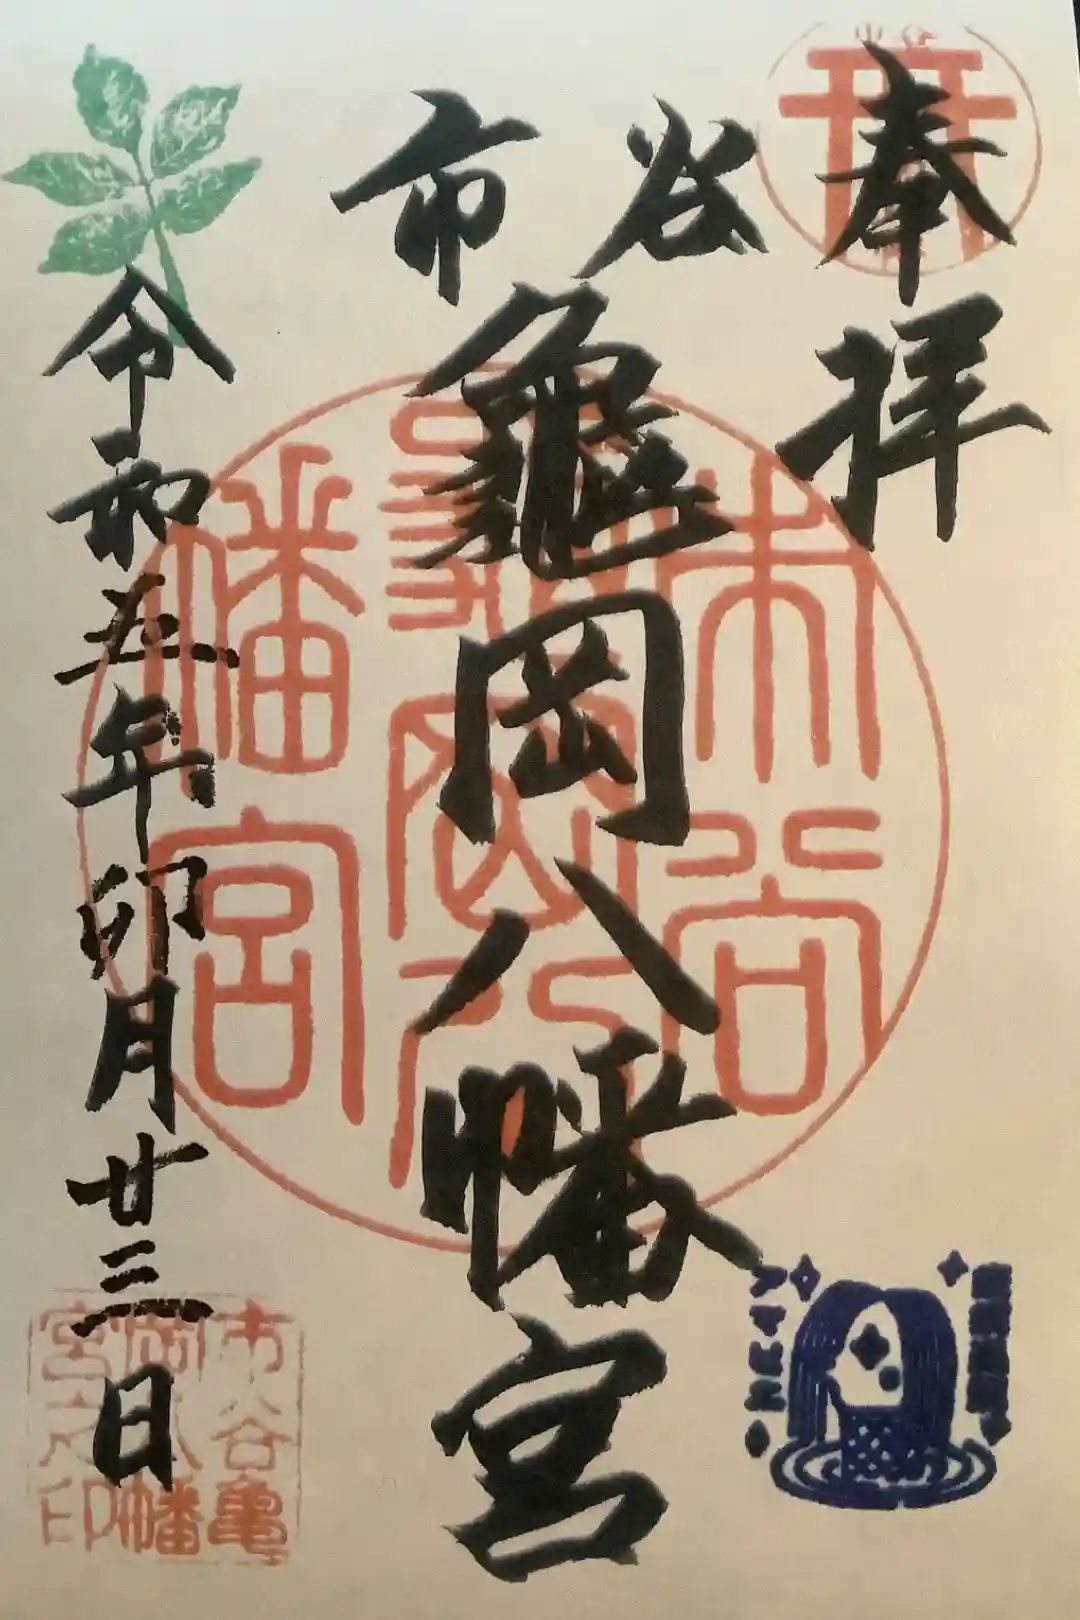 奉拝
市谷
亀岡八幡宮
令和五年卯月廿三日
市谷亀岡八幡宮
市谷亀
岡八幡
宮之印
アマビエ